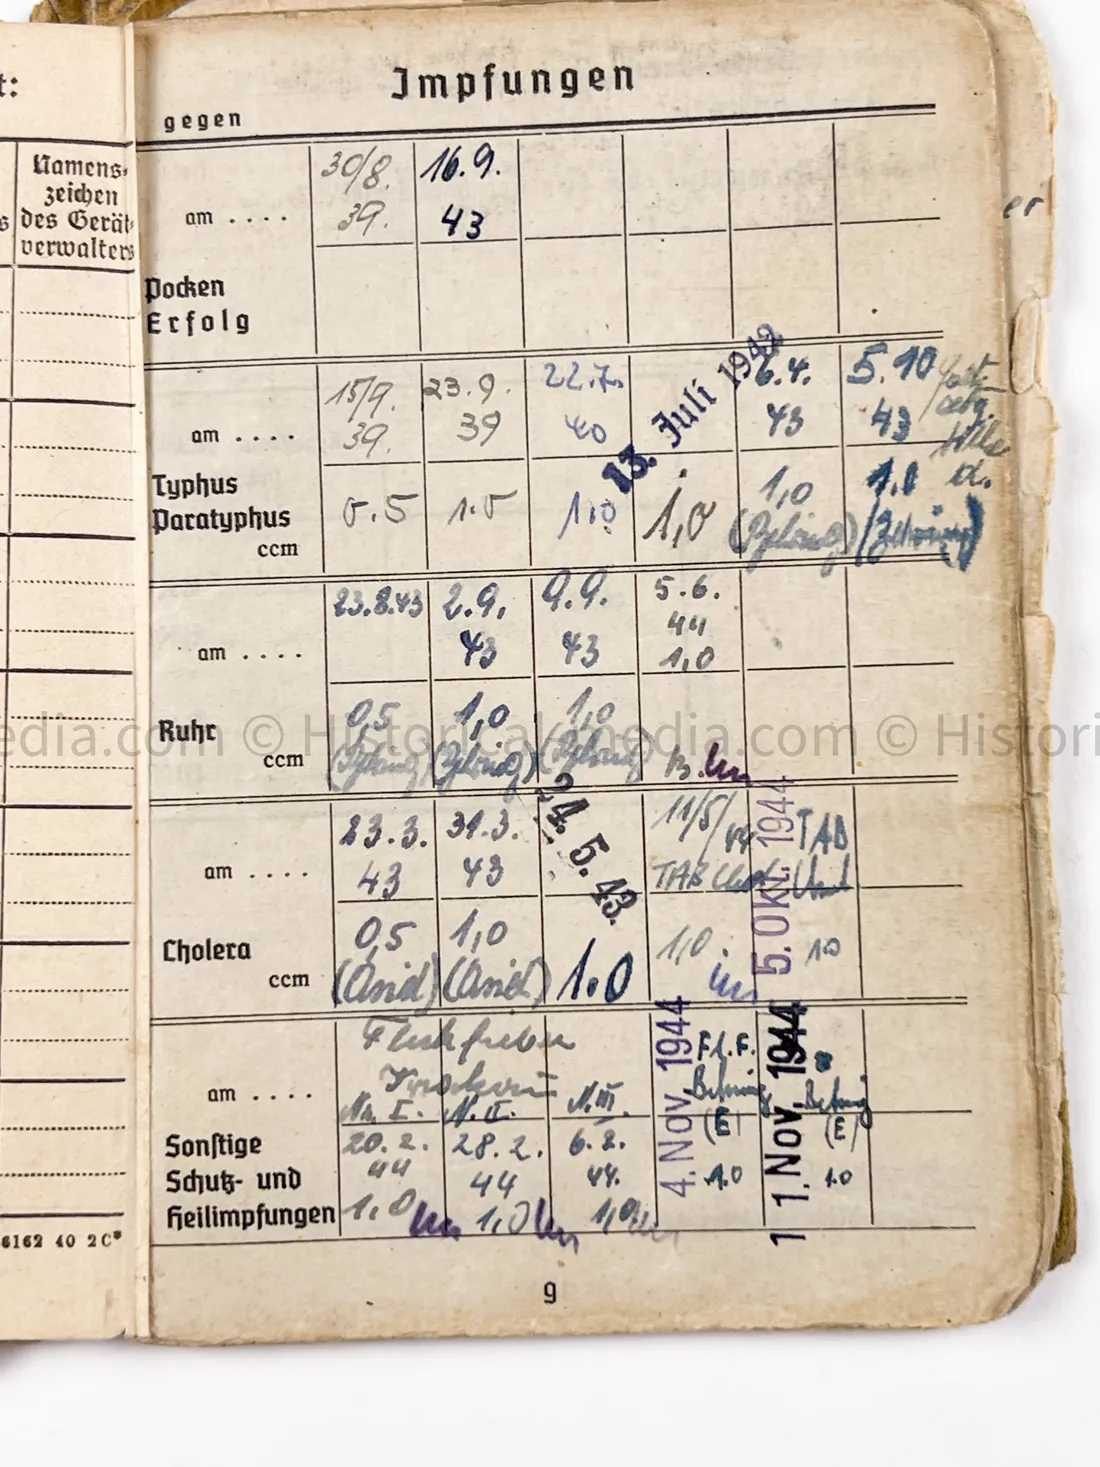 t:
Namens-
zeichen
des Gerät-
verwalters
6162 40 2C*
Impfungen
gegen
30/8. 16.9.
am . . . . 39. 43
Pocken
Erfolg
15/9. 23.9. 22.7. 13. Juli 1942 6.4. 5.10
am . . . . 39. 39 40 43 43
Typhus
Paratyphus 0.5 1.0 1,0 1,0 1,0 1.0
ccm (Behring) (Behring)
23.8.43 2.9. 9.9. 5.6.
am . . . . 43 43 44
1,0
Ruhr 0,5 1,0 1,0
ccm (Behring) (Behring) (Behring)
23.3. 31.3. 24. 5. 43. 11/5/44 5. Okt. 1944 TAB
am . . . . 43 43 TAB Chol
Cholera 0,5 1,0 1.0 1,0 1.0
ccm (Asid) (Asid)
Fleckfieber 4. Nov. 1944 Fl.F. 1 1. Nov. 1944
am . . . . Behring Behring
No. I. N. II. N. III. (E) (E)
Sonstige 20.2. 28.2. 6.2.
Schutz- und 44 44 44. 1.0 1.0
Heilimpfungen 1.0 1,0 1,0
9
er
edia.com © Historicalmedia.com © Histori